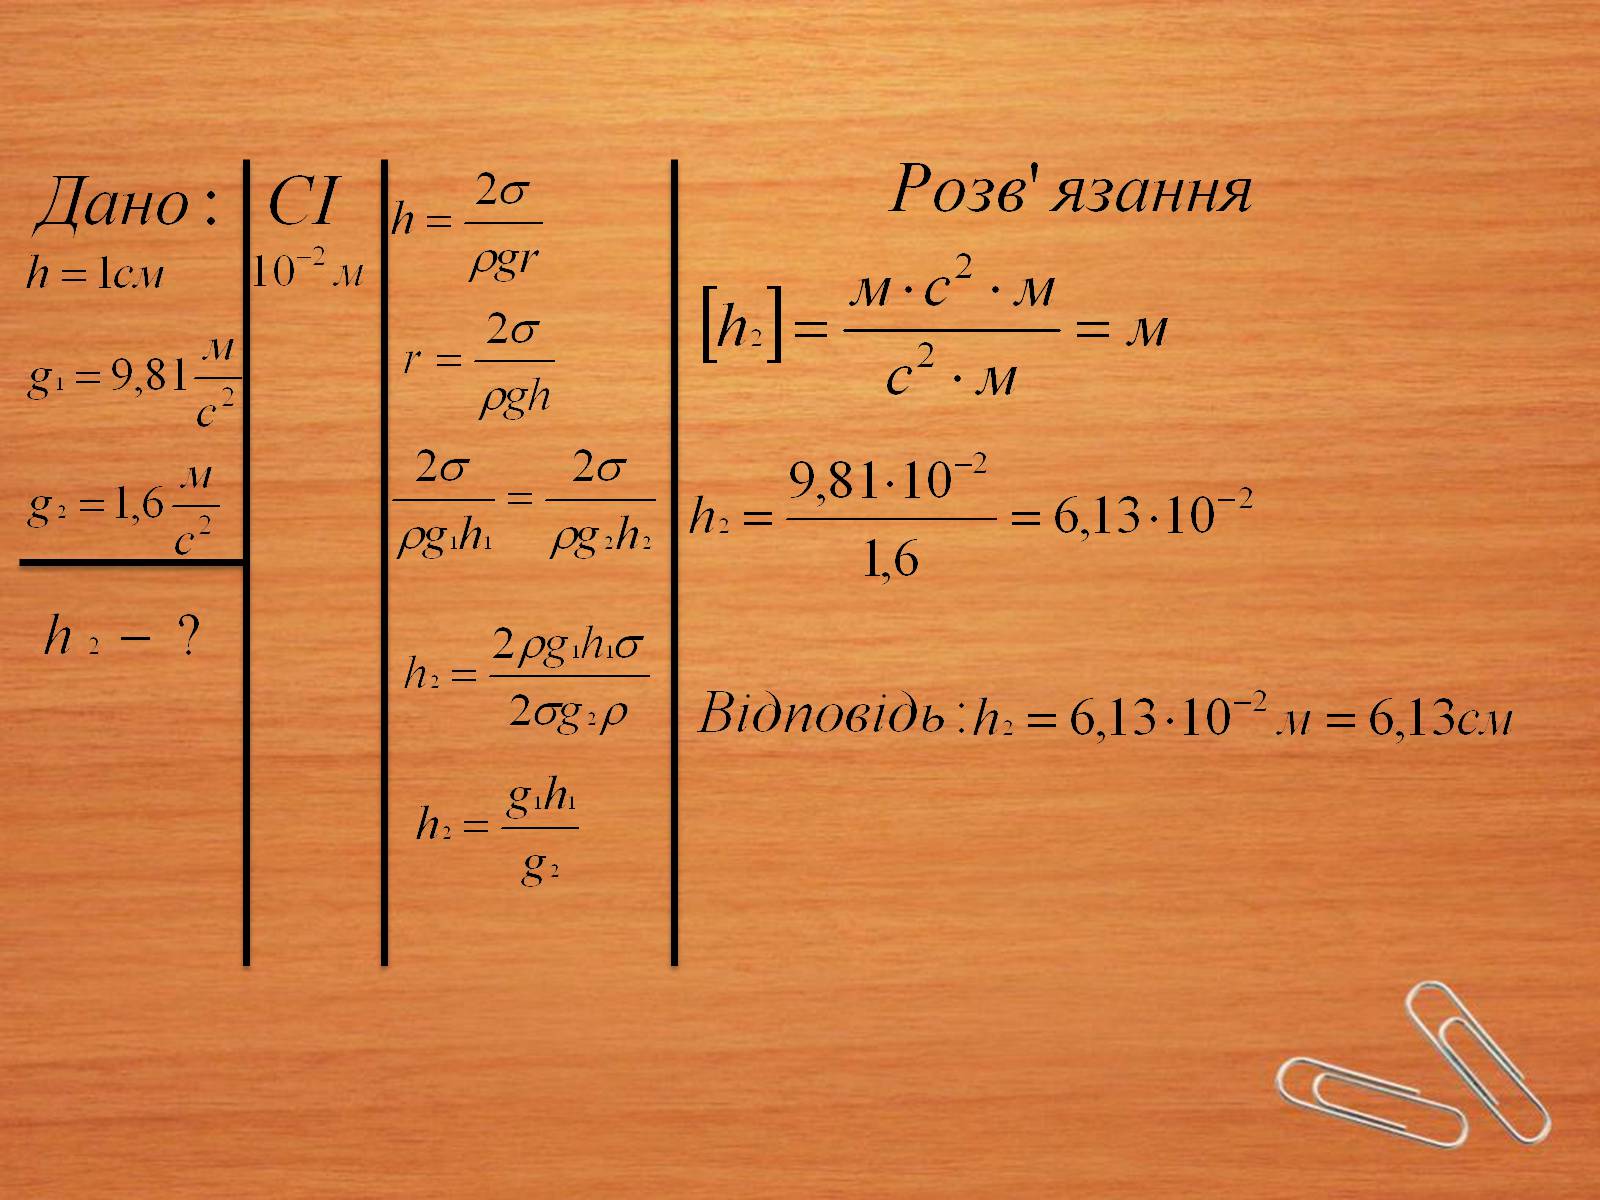 Дано:
h = 1см
g₁ = 9,81 м/с²
g₂ = 1,6 м/с²
h₂ − ?
СІ
10⁻² м
h = 2σ/ρgr
r = 2σ/ρgh
2σ/ρg₁h₁ = 2σ/ρg₂h₂
h₂ = 2ρg₁h₁σ/2σg₂ρ
h₂ = g₁h₁/g₂
Розв'язання
[h₂] = м·с²·м/с²·м = м
h₂ = 9,81·10⁻²/1,6 = 6,13·10⁻²
Відповідь: h₂ = 6,13·10⁻² м = 6,13см